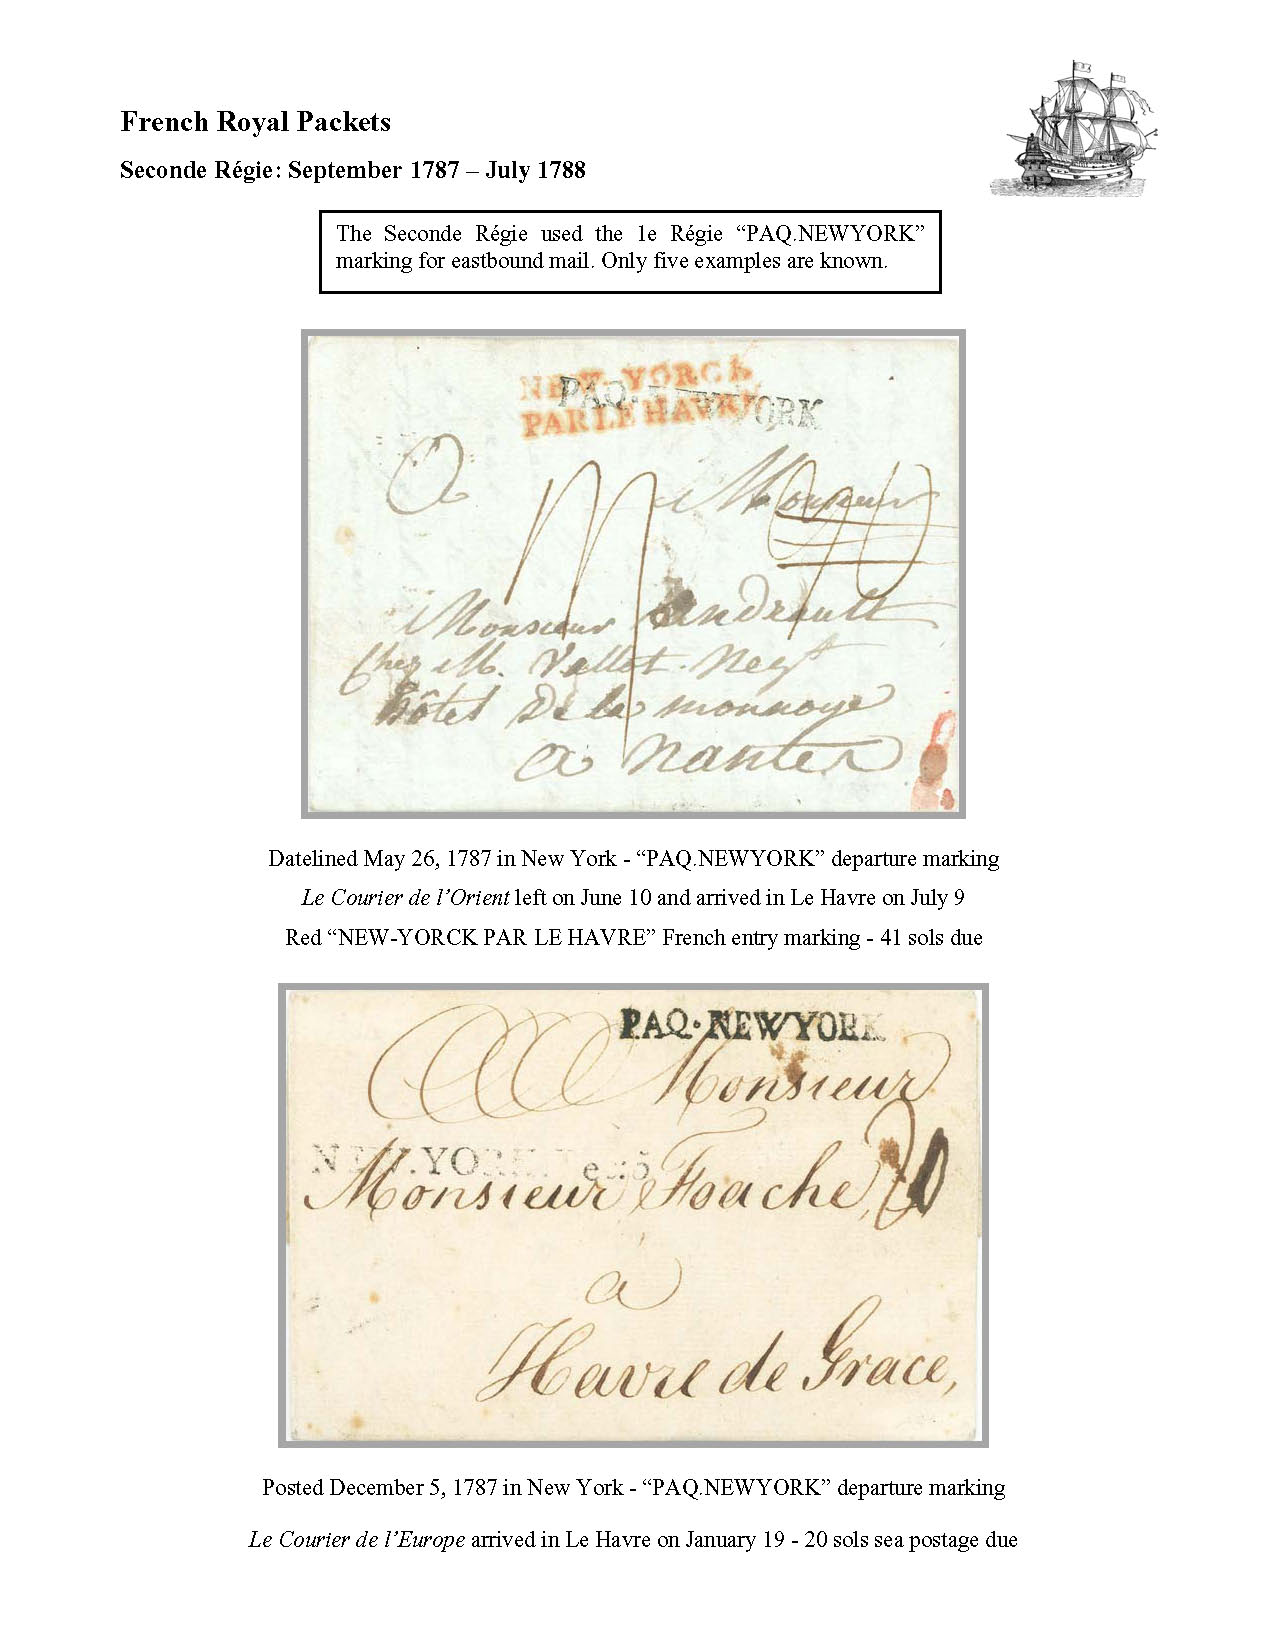 French Royal Packets
Seconde Régie: September 1787 – July 1788
The Seconde Régie used the 1e Régie “PAQ.NEWYORK”
marking for eastbound mail. Only five examples are known.
NEW-YORCK
PAQ·NEWYORK
PAR LE HAVRE
A Monsieur
Monsieur Andrault
Chez M. Vallet Negt
hôtel De la monnoye
a Nantes
Datelined May 26, 1787 in New York - “PAQ.NEWYORK” departure marking
Le Courier de l’Orient left on June 10 and arrived in Le Havre on July 9
Red “NEW-YORCK PAR LE HAVRE” French entry marking - 41 sols due
PAQ·NEWYORK
Monsieur
NEW.YORK
Monsieur Foache, 20
à
Havre de Grace,
Posted December 5, 1787 in New York - “PAQ.NEWYORK” departure marking
Le Courier de l’Europe arrived in Le Havre on January 19 - 20 sols sea postage due